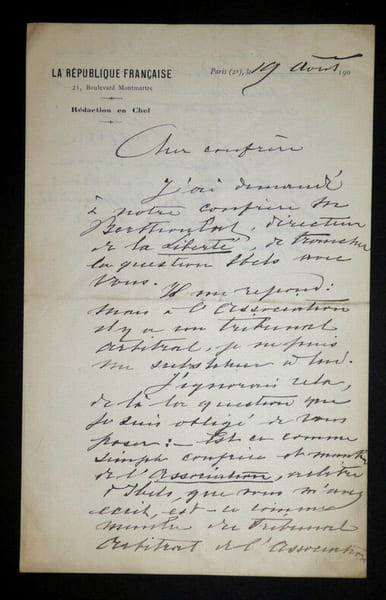 LA RÉPUBLIQUE FRANÇAISE
21, Boulevard Montmartre
Rédaction en Chef
Paris (2e), le 19 Août 190
Cher confrère
J'ai demandé
à notre confrère M
Berthoulat, directeur
de la Liberté, de trancher
la question Ibels avec
vous.
Il me répond:
mais à l'Association
il y a un tribunal
arbitral, je ne puis
me substituer à lui.
J'ignorais cela,
de là la question que
je suis obligé de vous
poser: - Est ce comme
simple confrère et membre
de l'Association, arbitre
d'Ibels, que vous m'avez
écrit, est-ce comme
membre du Tribunal
arbitral de l'Association